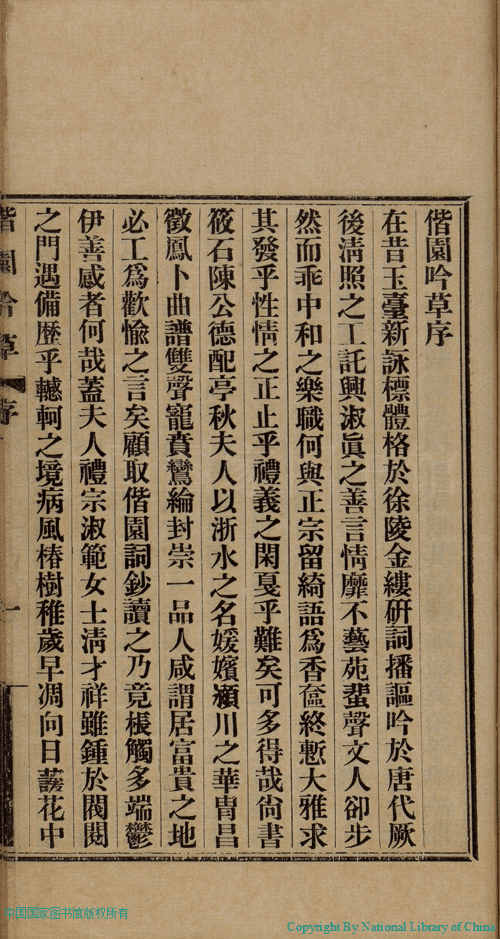 偕園吟草序
在昔玉臺新詠標體格於徐陵金縷研詞播謳吟於唐代厥
後淸照之工託興淑眞之善言情靡不藝苑蜚聲文人卻步
然而乖中和之樂職何與正宗留綺語爲香奩終慙大雅求
其發乎性情之正止乎禮義之閑戛乎難矣可多得哉尙書
筱石陳公德配亭秋夫人以浙水之名媛嬪潁川之華胄昌
徵鳳卜曲譜雙聲寵賁鸞綸封崇一品人咸謂居富貴之地
必工爲歡愉之言矣顧取偕園詞鈔讀之乃竟棖觸多端鬱
伊善感者何哉蓋夫人禮宗淑範女士淸才祥雖鍾於閥閱
之門遇備歷乎轗軻之境病風椿樹稚歲早凋向日蘐花中
偕園吟草 序 一
中国国家图书馆版权所有
Copyright By National Library of China